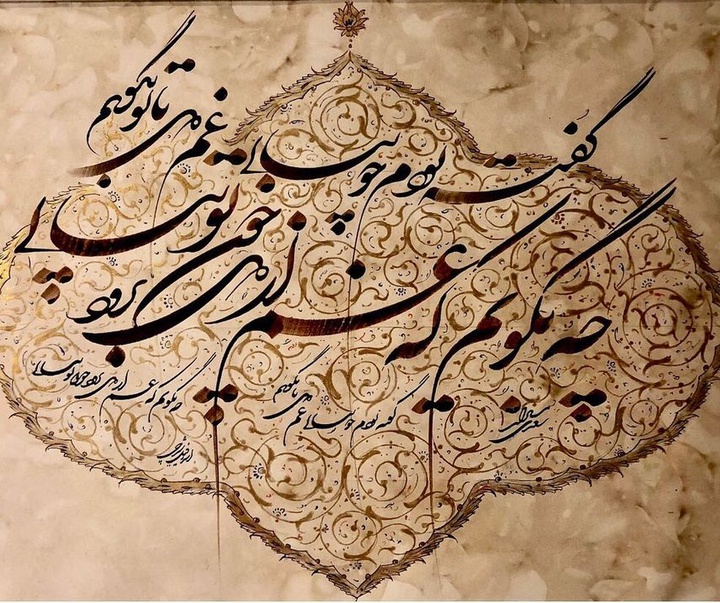 گفته بودم چو بیایی غم دل با تو بگویم
چه بگویم که غم از دل برود چون تو بیایی
گفته بودم چو بیایی غم دل با تو بگویم
چه بگویم که غم از دل برود چون تو بیایی
سعدی